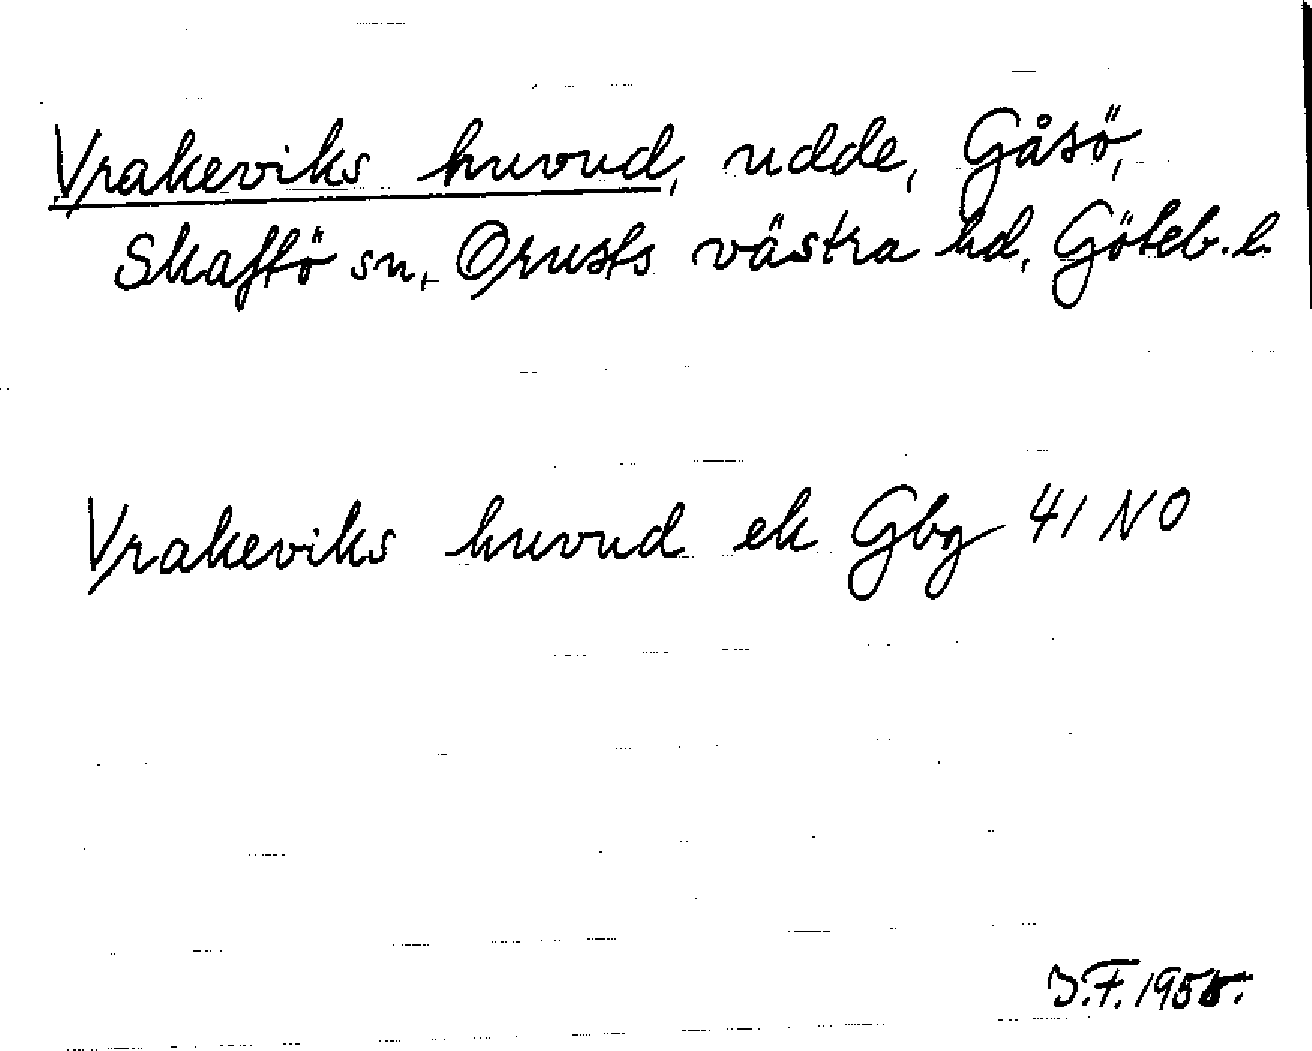 Vrakeviks huvud, udde, Gåsö,
Skaftö sn, Orusts västra hd, Göteb. l.
Vrakeviks huvud ek Gbg 41 NO
J.F. 1955.